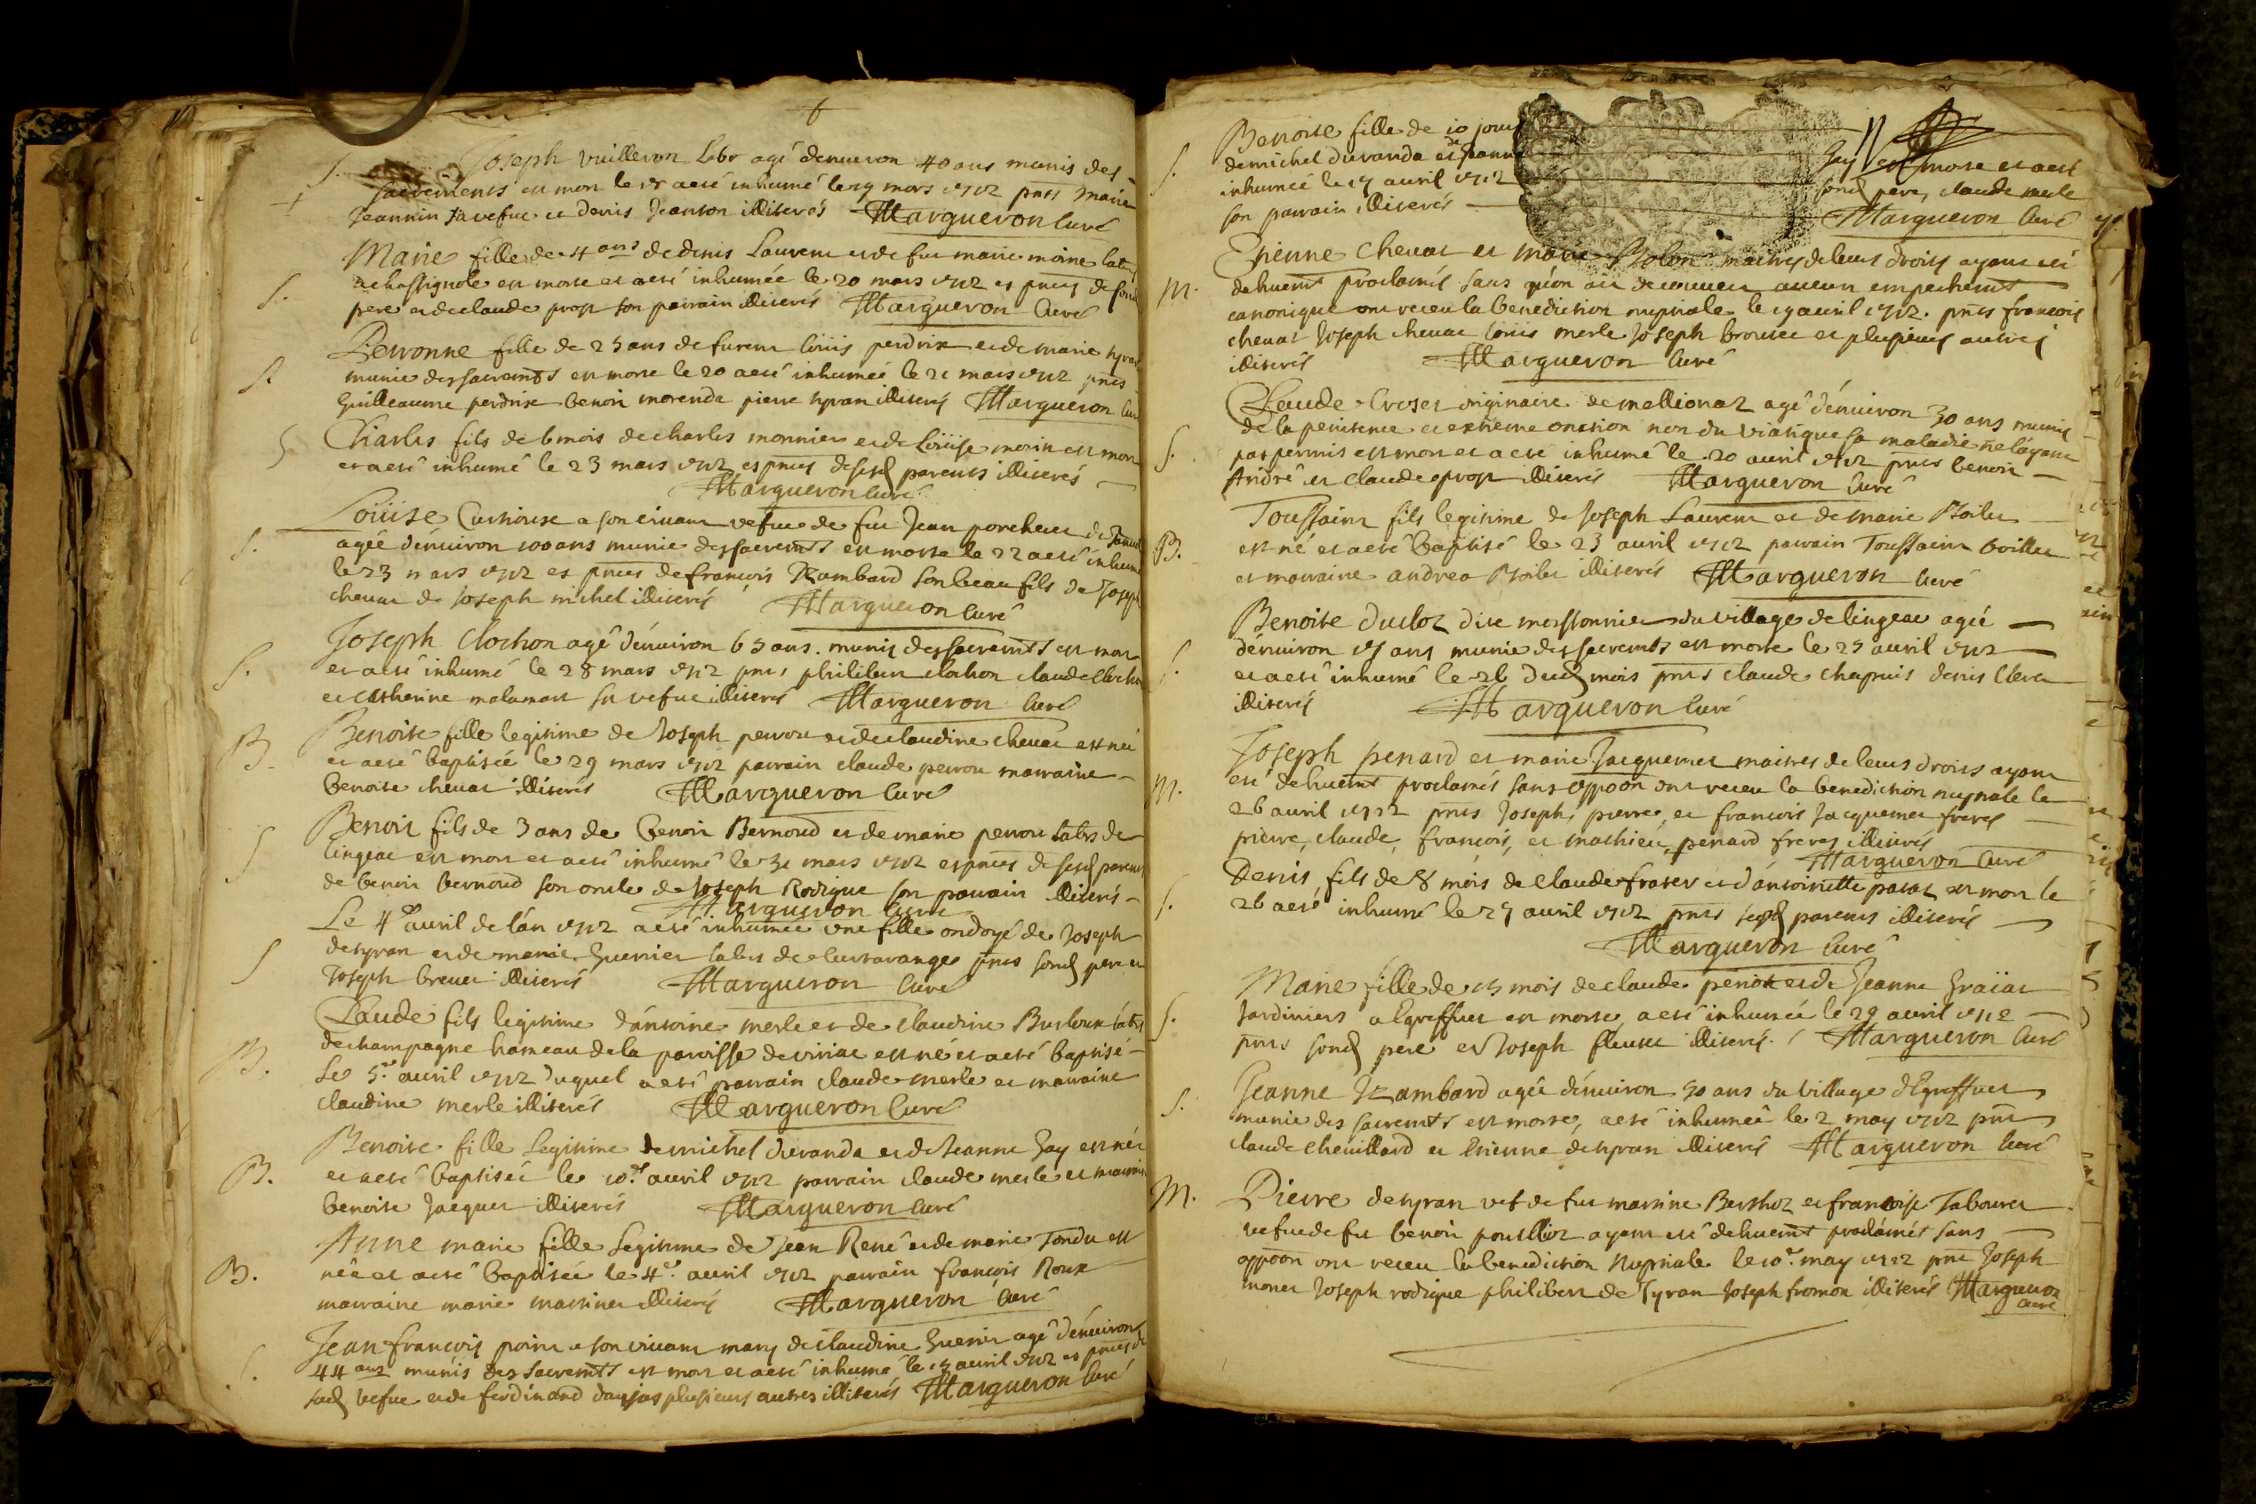 S. Joseph vuilleron labr agé denuiron 40 ans munis des
sacrements est mort le 18 a eté inhumé le 19 mars 1712 pnts marie
Jeannin sa vefue et denis Jeanton illiterés Margueron Curé
Marie fille de 4 ans de denis Laurent et de fue marie moine labrs
S. a chassignole est morte et a eté inhumée le 20 mars 1712 es pnces de sond
pere et de claude prost son parrain illiterés Margueron Curé
Perronne fille de 25 ans de furent loüis perdrix et de marie
S. munie des sacremts est morte le 20 a eté inhumée le 21 mars 1712 pnts
Guilleaume perdrix benoit morenda pierre tyran illiterés Margueron Cu
S Charles fils de 6 mois de charles monnier et de Loüise morin est mort
et a eté inhumé le 23 mars 1712 es pnces de sesd parents illiterés
Margueron Curé
Loüise a son viuant vefue de fut Jean porcheur
S. agée d'enuiron 100 ans munie des sacremts est morte le 22 a eté inhumé
le 23 mars 1712 es pnces de francois Rambard son beau fils de Joseph
cheuat de Joseph michel illiterés Margueron Curé
S. Joseph Clochon agé d'enuiron 65 ans munis des sacremts est mort
et a eté inhumé le 28 mars 1712 pnts philibert clochon claude Cloch
et Catherine malamart sa vefue illiterés Margueron Curé
B. Benoite fille legitime de Joseph perrou et de claudine cheuat est née
et a eté baptisée le 29 mars 1712 parrain claude perrou marraine
benoite cheuat illiterés Margueron Curé
Benoit fils de 3 ans de benoit Bernoud et de marie perrou labrs de
S lingeat est mort et a eté inhumé le 31 mars 1712 es pnces de sesd parents
de benoit bernoud son oncle de Joseph Rodigue son parrain illiterés
Margueron Curé
Le 4e auril de l'an 1712 a eté inhumée vne fille ondoyé de Joseph
S detyran et de marie Guerrier labrs de pnts sond pere et
Joseph breuet illiterés Margueron Curé
Claude fils legitime d'antoine merle et de claudine labrs
B. de champagne hameau de la parroisse de viriat est né et a eté baptisé
le 5e auril 1712 duquel a eté parrain claude merle et marraine
claudine merle illiterés Margueron Curé
Benoite fille legitime de michel duranda et de Jeanne Gay est née
B. et a eté baptisée le 10e auril 1712 parrain claude merle et marraine
benoite Jacquet illiterés Margueron Curé
Anne marie fille legitime de Jean René et de marie Tondu est
B. née et a eté baptisée le 4e auril 1712 parrain francois Roux
marraine marie martinet illiterés Margueron Curé
Jean francois poirat a son viuant mary de claudine Guerin agé d'enuiron
S. 44 ans munis des sacremts est mort et a eté inhumé le 13 auril 1712 es pnces de
sad vefue et de ferdinand daujas plusieurs autres illiterés Margueron Curé
Benoite fille de 10 jours
S. de michel duranda et de Jeanne Gay est morte et a eté
inhumée le 17 auril 1712 sond pere, claude merle
son parrain illiterés Margueron Curé
Etienne Cheuat et marie Bolon maitres de leurs droits ayant eté
M. dehuemt proclamés sans qu'on ait decouuert aucun empechemt
canonique ont receu la benediction nuptiale le 19 auril 1712. pnts francois
cheuat Joseph cheuat loüis merle Joseph brouet et plusieurs autres
illiterés Margueron Curé
Claude Croset originaire de mellionat agé d'enuiron 30 ans munis
S. de la penitence et extreme onction non du viatique sa maladie ne l'ayant
pas permis est mort et a eté inhumé le 20 auril 1712 pnts benoit
André et claude prost illiterés Margueron Curé
Toussaint fils legitime de Joseph Laurent et de marie Boiler
B. est né et a eté baptisé le 23 auril 1712 parrain Toussaint boiller
et marraine andrea Boiler illiterés Margueron Curé
Benoite Ducloz dite moissonnier du village de lingeat agée
S. d'enuiron ans munie des sacremts est morte le 25 auril 1712
et a eté inhumé le 26 dud mois pnts claude chapuis denis Clerc
illiterés Margueron Curé
Joseph penard et marie Jacquemet maitres de leurs droits ayant
M. eté dehuemt proclamés sans oppoon ont receu la benediction nuptiale le
26 auril 1712 pnts Joseph, pierre, et francois Jacquemet freres
pierre, claude, francois, et mathieu, penard freres illiterés
Margueron Curé
Denis fils de 8 mois de claude frater et d'antoinette paras est mort le
S. 26 a eté inhumé le 27 auril 1712 pnts sesd parents illiterés
Margueron Curé
Marie fille de 15 mois de claude penot et de Jeanne Graiat
S. Jardiniers a Egreffuet est morte, a eté inhumée le 29 auril 1712
pnts sond pere et Joseph fleuret illiterés. Margueron Curé
Jeanne Rambard agée d'enuiron 50 ans du village d'Egreffuet
S. munie des sacremts est morte, a eté inhumée le 2 may 1712 pnts
claude cheuillard et Etienne detyran illiterés Margueron Curé
M. Pierre detyran vef de fut martine Berthoz et francoise Tabouret
vefue de fut benoit poulliet ayant eté dehuemt proclamés sans
oppoon ont receu la benediction Nuptiale le 10e may 1712 pnt Joseph
monet Joseph rodigue philibert de Tyran Joseph fromon illiterés Margueron
Curé